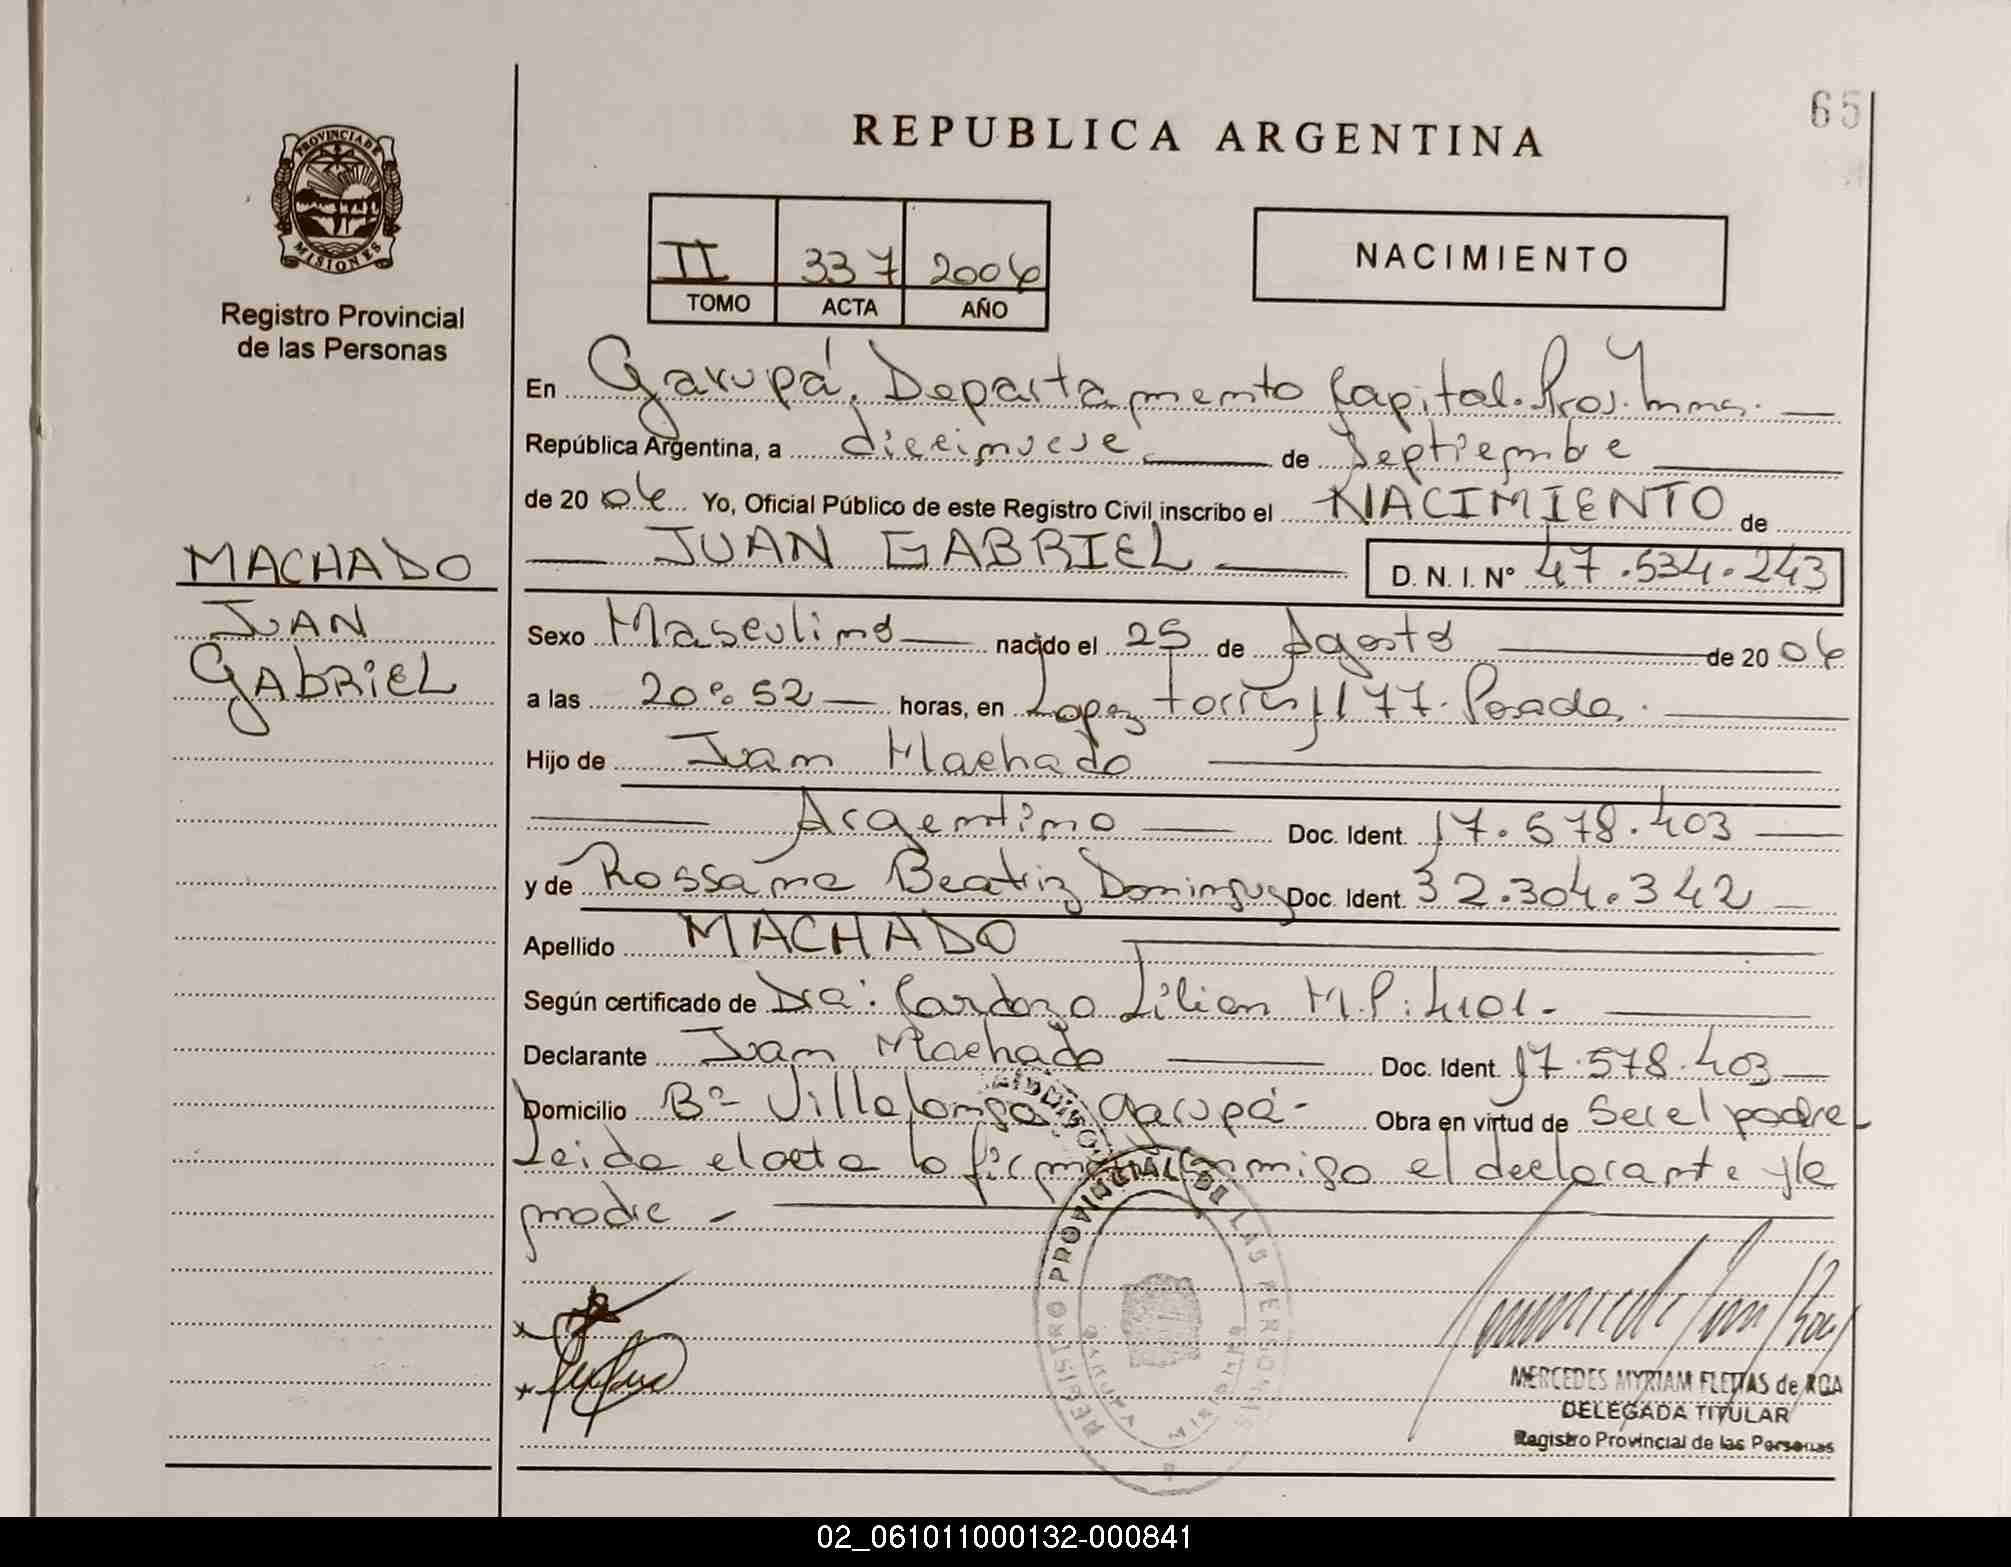 65
REPUBLICA ARGENTINA
PROVINCIA DE
MISIONES
Registro Provincial
de las Personas
II 337 2006
TOMO ACTA AÑO
NACIMIENTO
En Garupá, Departamento Capital. Pros. Mnes.
República Argentina, a diecinueve de Septiembre
de 20 06 Yo, Oficial Público de este Registro Civil inscribo el NACIMIENTO de
JUAN GABRIEL D. N. I. Nº 47.534.243
MACHADO
JUAN
GABRIEL
Sexo Masculino nacido el 25 de Agosto de 20 06
a las 20:52 horas, en Lopez torres 1177. Posadas.
Hijo de Juan Machado
Argentino Doc. Ident. 17.578.403
y de Rossana Beatriz Dominguez Doc. Ident. 32.304.342
Apellido MACHADO
Según certificado de Dra: Cardozo Lilian M.P: 4101.
Declarante Juan Machado Doc. Ident. 17.578.403
Domicilio Bº Villalonga Garupá- Obra en virtud de Ser el padre
Leida el acta la firma conmigo el declarante y la
madre -
REGISTRO PROVINCIAL DE LAS PERSONAS
GARUPA MISIONES
MERCEDES MYRIAM FLEITAS de ROA
DELEGADA TITULAR
Registro Provincial de las Personas
02_061011000132-000841